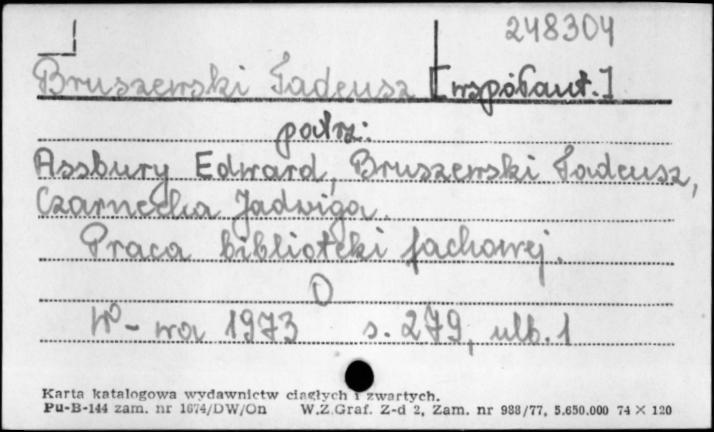 248304
Bruszewski Tadeusz [współaut.]
patrz:
Assbury Edward, Bruszewski Tadeusz,
Czarnecka Jadwiga.
Praca biblioteki fachowej.
W-wa 1973 s. 279, ulb. 1
Karta katalogowa wydawnictw ciągłych i zwartych.
Pu-B-144 zam. nr 1674/DW/On W.Z.Graf. Z-d 2, Zam. nr 988/77, 5.650.000 74 × 120